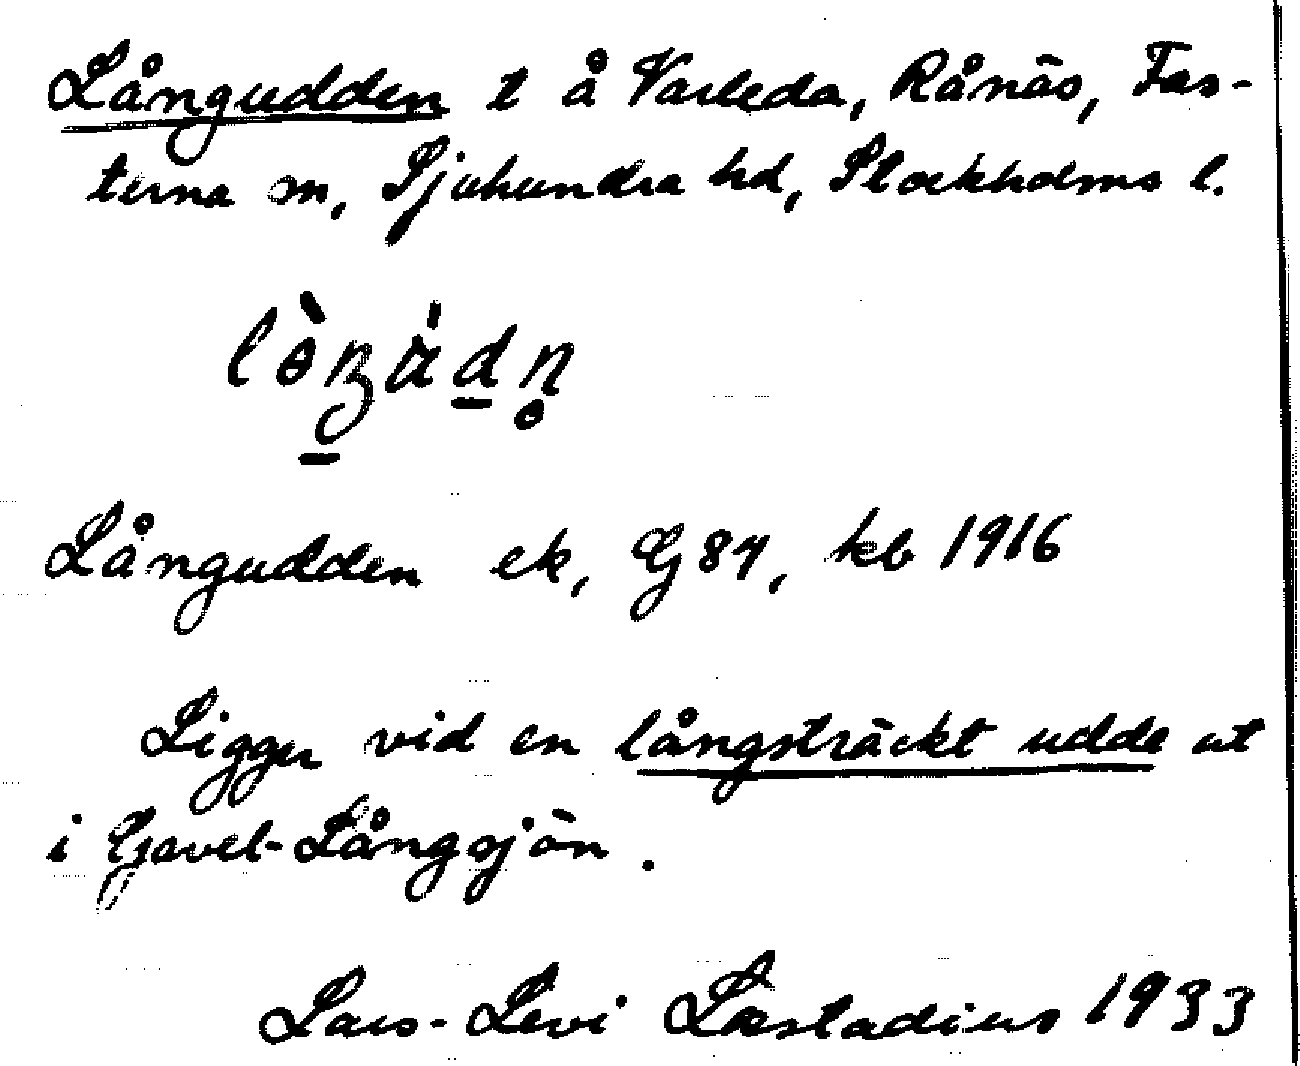 Långudden t å Vasleda, Rånäs, Fas-
terna sn, Sjuhundra hd, Stockholms l.
Långudden ek, G 87, kb 1916
Ligger vid en långsträckt udde ut
i Gavel-Långsjön.
Lars-Levi Læstadius 1933